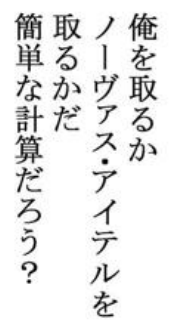 俺を取るか
ノーヴァス・アイテルを
取るかだ
簡単な計算だろう？